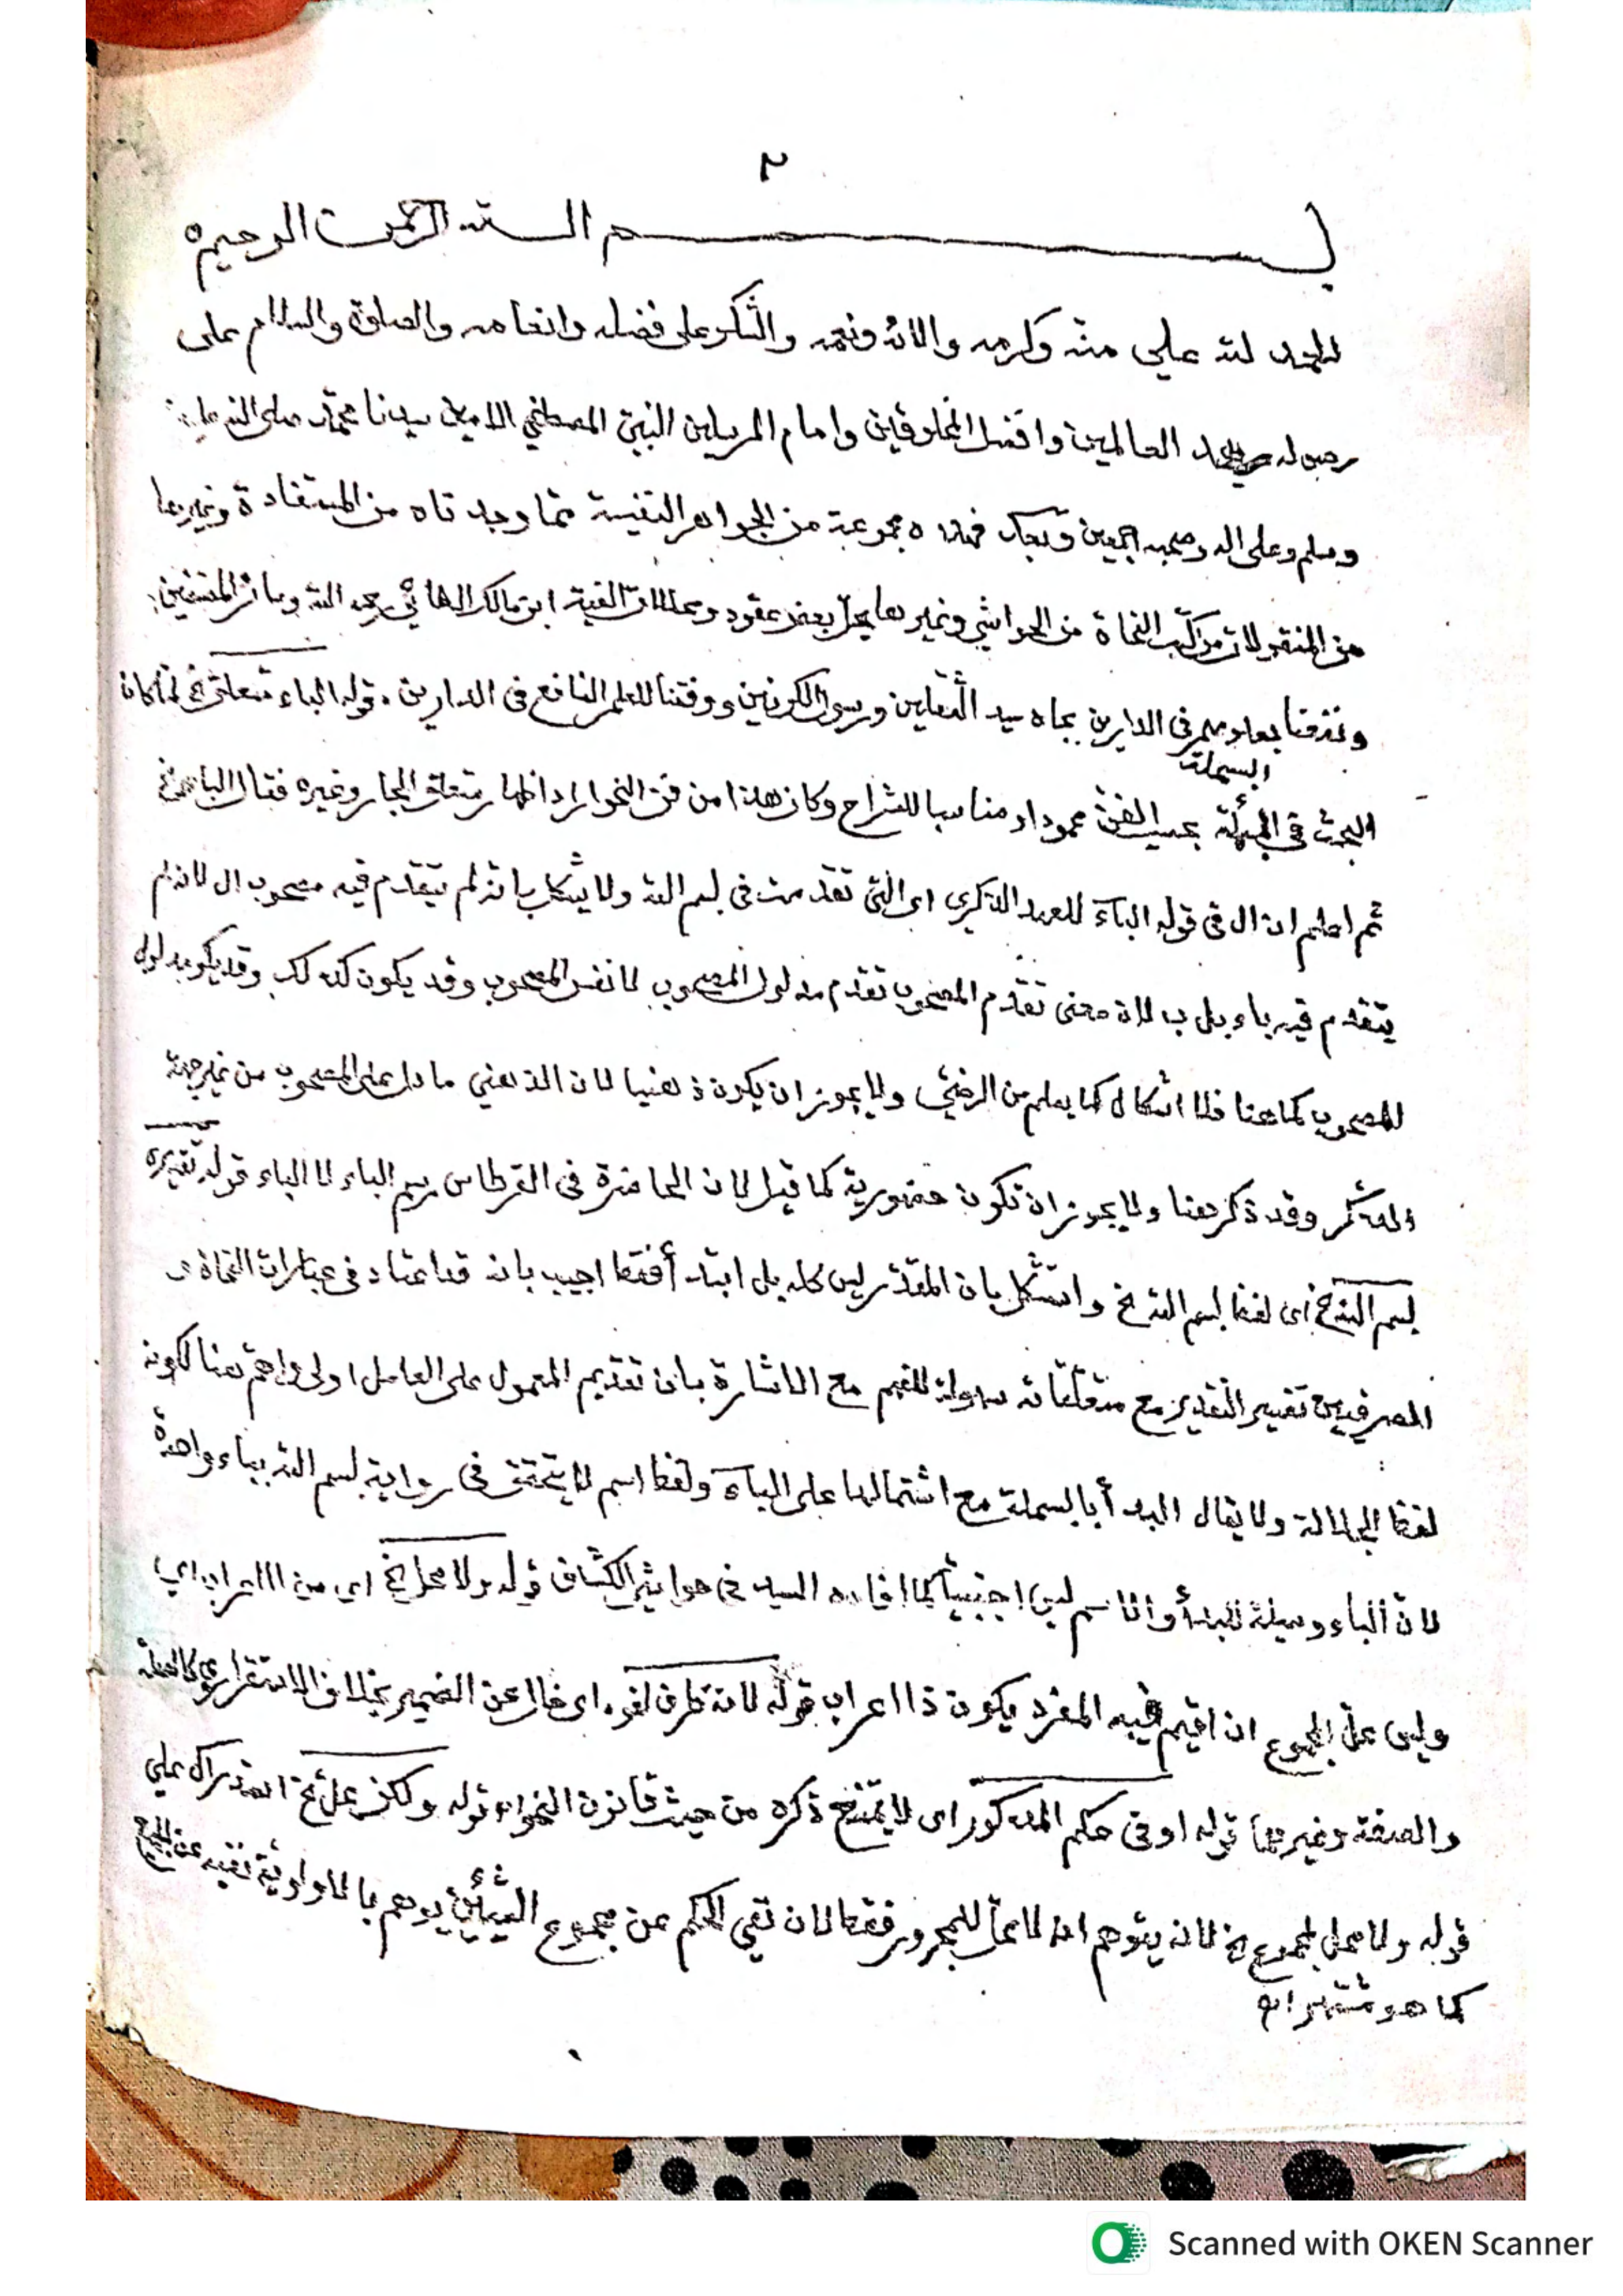 ٢
بسم الله الرحمن الرحيم
الحمد لله على منّه وكرمه والائه ونعمه والشكر على فضله وانعامه والصلوة والسلام على
رسوله سيد العالمين وافضل المخلوقين وامام المرسلين النبيّ المصطفي الامين سيدنا محمّد صلى الله عليه
وسلم وعلى اله وصحبه اجمعين وبعد فهذه مجموعة من الجواهر النفيسة ممّا وجدناه من المستفادة وغيرها
من المنقولات من كتب النحاة من الحواشي وغيرها يحلّ بعض عقود ومحلات الفية ابن مالك الطائيّ رحمه الله وسائر المصنفين
ونفعنا بعلومهم في الدارين بجاه سيد الثّقلين ورسول الكونين ووفقنا للعلم النافع في الدارين. قوله الباء متعلق الخ لمّا كان
البسملة
البحث في بحسب الفنّ محمودا ومناسبا للشراح وكان هذا من فنّ النحو اراد اظهار متعلق الجار وغيره فقال الباء الخ
ثم اعلم ان ال في قوله الباء للعهد الذكري اى التي تقدمت في بسم الله ولا يشكل بانه لم يتقدم فيه مصحوب ال لانه لم
يتقدم فيه باء بل ب لان معنى تقدّم المصحوب تقدّم مدلول المصحوب لا نفس المصحوب وقد يكون كذلك وقد يكون مدلول
المصحوب كما هنا فلا اشكال كما يعلم من الرضيّ ولا يجوز ان يكون ذهنيا لان الذهني ما دل على المصحوب من غير جهة
الذكر وقد ذكر هنا ولا يجوز ان تكون حضورية كما قيل لان الحاضرة في القرطاس رسم الباء لا الباء قوله تقديره
بسم الله الخ اى لفظ بسم الله الخ واستشكل بان المقدّر ليس كله بل ابتدأ فقط اجيب بانه قد اعتاد في عبارات النحاة و
الصرفيين تفسير التقدير مع متعلقاته سهولة للفهم مع الاشارة بان تقديم المعمول على العامل اولى واهمّ هنا لكونه
لفظ الجلالة ولا يقال البدأ بالبسملة مع اشتمالها على الباء ولفظ اسم لا يتحقق في رواية بسم الله بباء واحدة
لان الباء وسيلة للبدأ والاسم ليس اجنبيا كما افاده السيد في حواشي الكشّاف قوله ولا محل الخ اى من الاعراب اي
وليس محلّ المجموع ان اقيم فيه المفرد يكون ذا اعراب قوله لانه ظرف لغو، اى خال عن الضمير بخلاف الاستقراري كالصلة
والصفة وغيرهما قوله او في حكم المذكور اى لا يمتنع ذكره من حيث قانون النحو، قوله ولكن محلّ الخ استدراك علي
قوله ولا محل لمجموع الخ لانه يتوهم انه لا محلّ للمجرور فقط لان نفي الحكم عن مجموع الشيئين يوهم بالاولوية نفيه عن الجميع
كما هو مشتهر